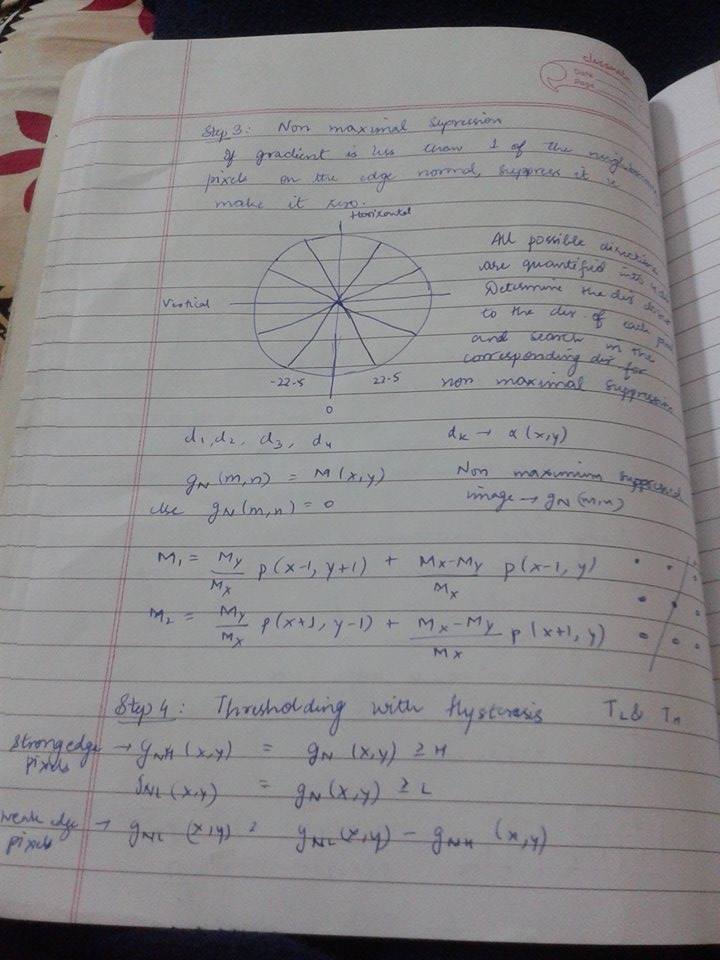 classmate
Date
Page
Step 3: Non maximal Supression
If gradient is less than 1 of the
pixels on the edge normal, suppress it ie
make it zero.
Horizontal
Vertical
-22.5
22.5
0
All possible
are quantified into 4
Determine the dir
to the dir. of each
and search in the
corresponding dir for
non maximal
d1, d2, d3, d4
dk → α(x,y)
gN (m,n) = M(x,y)
else gN (m,n) = 0
Non maximum suppressed
image → gN (m,n)
M1 = My/Mx p(x-1, y+1) + Mx-My/Mx p(x-1, y)
M2 = My/Mx p(x+1, y-1) + Mx-My/Mx p(x+1, y)
Step 4: Thresholding with Hysterisis TL & TH
Strong edge pixels → gNH (x,y) = gN (x,y) ≥ H
gNL (x,y) = gN (x,y) ≥ L
weak edge pixels → gNL (x,y) = gNL (x,y) - gNH (x,y)